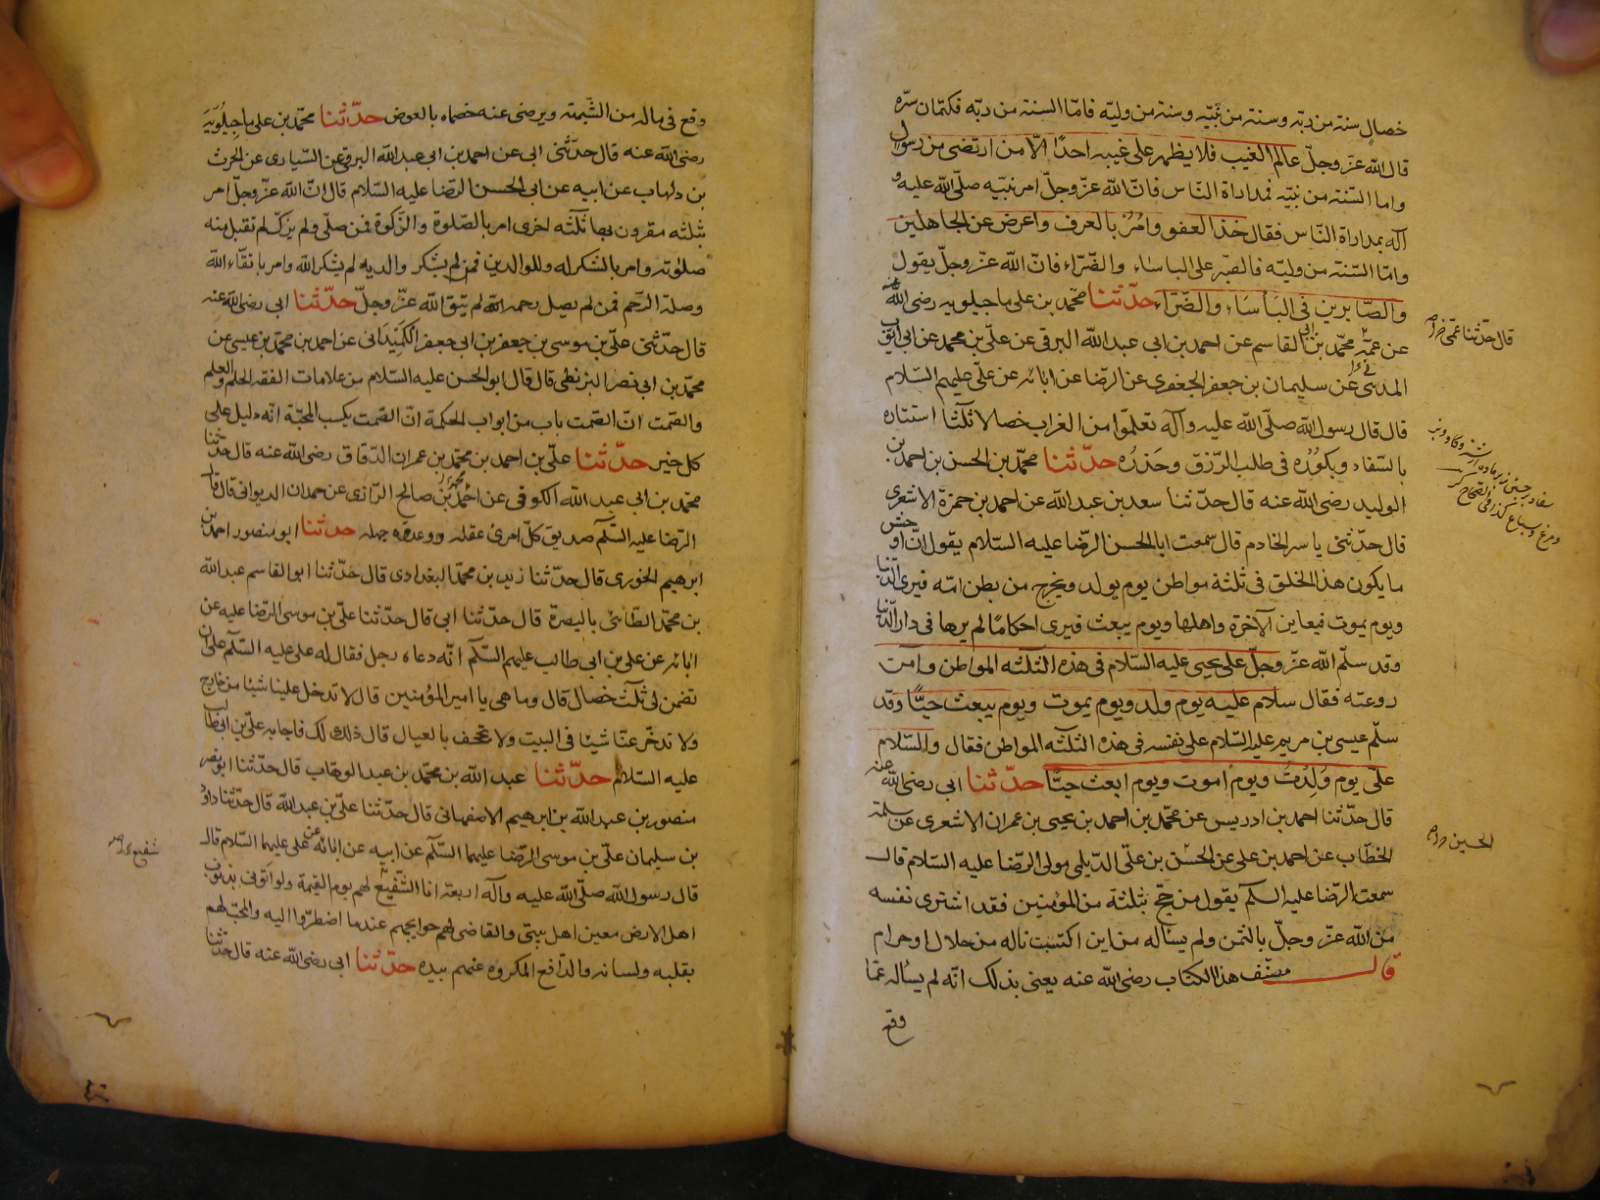 خصال سنة من ربّه وسنة من نبيّه وسنة من وليّه فامّا السنة من ربّه فكتمان سرّه
قال الله عزّ وجلّ عالم الغيب فلا يظهر على غيبه احدًا الّا من ارتضى من رسول
واما السّنة من نبيّه فمداراة النّاس فانّ الله عزّ وجلّ امر نبيّه صلّى الله عليه و
آله بمداراة النّاس فقال خذ العفو وامُرْ بالعرف واعرض عن الجاهلين
وامّا السّنة من وليّه فالصبر على الباساء والضّراء فانّ الله عزّ وجلّ يقول
والصّابرين فى البأساء والضّرّاء حدّثنا محمّد بن على ماجيلويه رضى الله عنه
عن عمّه محمّد بن ابى القاسم عن احمد بن ابى عبد الله البرقى عن علىّ بن محمد عن ابى ايّوب
المدنىّ عن سليمان بن جعفر الجعفرى عن الرّضا عن ابائه عن علىّ عليهم السّلام
قال قال رسول الله صلّى الله عليه وآله تعلّموا من الغراب خصالا ثلثا استتاره
بالسّفاد وبكوره فى طلب الرّزق وحذره حدّثنا محمّد بن الحسن بن احمد بن
الوليد رضى الله عنه قال حدّثنا سعد بن عبد الله عن احمد بن حمزة الاشعرى
قال حدّثنى ياسر الخادم قال سمعت ابا الحسن الرّضا عليه السّلام يقول انّ اوحش
ما يكون هذا الخلق فى ثلثة مواطن يوم يولد ويخرج من بطن امّه فيرى الدّنيا
ويوم يموت فيعاين الآخرة واهلها ويوم يبعث فيرى احكامًا لم يرها فى دار الدّنيا
وقد سلّم الله عزّ وجلّ على يحيى عليه السّلام فى هذه الثلثه المواطن وآمن
روعته فقال سلام عليه يوم ولد ويوم يموت ويوم يبعث حيًّا وقد
سلّم عيسى بن مريم عليه السّلام على نفسه فى هذه الثلثه المواطن فقال والسّلام
علىّ يوم وُلِدْتُ ويوم اموت ويوم ابعث حيًّا حدّثنا ابى رضى الله عنه
قال حدّثنا احمد بن ادريس عن محمّد بن احمد بن يحيى بن عمران الاشعرى عن سلمة
الخطّاب عن احمد بن على عن الحسن بن علىّ الدّيلمى مولى الرّضا عليه السّلام قال
سمعت الرّضا عليه السلم يقول من حجّ بثلثة من المؤمنين فقد اشترى نفسه
من الله عزّ وجلّ بالثمن ولم يسأله من اين اكتسب ماله من حلال او حرام
قال مصنّف هذا الكتاب رضى الله عنه يعنى بذلك انّه لم يسأله عمّا
وقع
قال حدّثنا عمّى
الحسين
وقع فى ماله من الشّبهة ويرضى عنه خصماه بالعوض حدّثنا محمّد بن على ماجيلُوَيه
رضى الله عنه قال حدّثنى ابى عن احمد بن ابى عبد الله البرقى عن السّيارى عن الحرث
بن دلهاب عن ابيه عن ابى الحسن الرّضا عليه السّلام قال انّ الله عزّ وجلّ امر
بثلثه مقرون بها ثلثه اخرى امر بالصّلوة والزّكوة فمن صلّى ولم يزكّ لم تقبل منه
صلوته وامر بالشكر له وللوالدين فمن لم يشكر والديه لم يشكر الله وامر باتّقاء الله
وصلة الرّحم فمن لم يصل رحمه لم يتّق الله عزّ وجلّ حدّثنا ابى رضى الله عنه
قال حدّثنى علىّ بن موسى بن جعفر بن ابى جعفر الكُمَيْدانى عن احمد بن محمّد بن عيسى عن
محمّد بن ابى نصر البزنطى قال قال ابو الحسن عليه السّلام من علامات الفقه الحلم والعلم
والصّمت انّ الصّمت باب من ابواب الحكمة انّ الصّمت يكسب المحبّة انّه دليل على
كل خير حدّثنا علىّ بن احمد بن محمّد بن عمران الدّقاق رضى الله عنه قال حدّثنا
محمّد بن ابى عبد الله الكوفى عن احمد بن صالح الرّازى عن حمدان الديوانى قال قال
الرّضا عليه السلم صديق كلّ امرئ عقله وعدوّه جهله حدثنا ابو منصور احمد بن
ابرهيم الخورى قال حدّثنا زيد بن محمّد البغدادى قال حدّثنا ابو القاسم عبد الله
بن محمّد الطائىّ بالبصرة قال حدّثنا ابى قال حدّثنا علىّ بن موسى الرّضا عليه عن
ابائه عن علىّ بن ابى طالب عليهم السّلم انّه دعاه رجل فقال له علىّ عليه السّلم على ان
تضمن لى ثلث خصال قال وما هى يا امير المؤمنين قال لا تدخل علينا شيئا من خارج
ولا تدخّر عنّا شيئا فى البيت ولا تجحف بالعيال قال ذلك لك فاجابه علىّ بن ابيطالب
عليه السّلام حدّثنا عبد الله بن محمّد بن عبد الوهاب قال حدّثنا ابو نصر
منصور بن عبد الله بن ابرهيم الاصفهانى قال حدّثنا علىّ بن عبد الله قال حدّثنا داوُد
بن سليمان علىّ بن موسى الرّضا عليهما السّلم عن ابيه عن ابائه عن على عليهما السّلام قال
قال رسول الله صلّى الله عليه وآله اربعة انا الشّفيع لهم يوم القيمة ولو اتونى بذنوب
اهل الارض معين اهل بيتى والقاضى لهم حوايجهم عندما اضطرّوا اليه والمحبّ لهم
بقلبه ولسانه والدّافع المكروه عنهم بيده حدّثنا ابى رضى الله عنه قال حدّثنا
شفيع